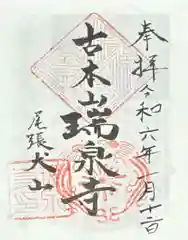 奉拝 令和六年一月十
古本山瑞泉寺
尾張犬山